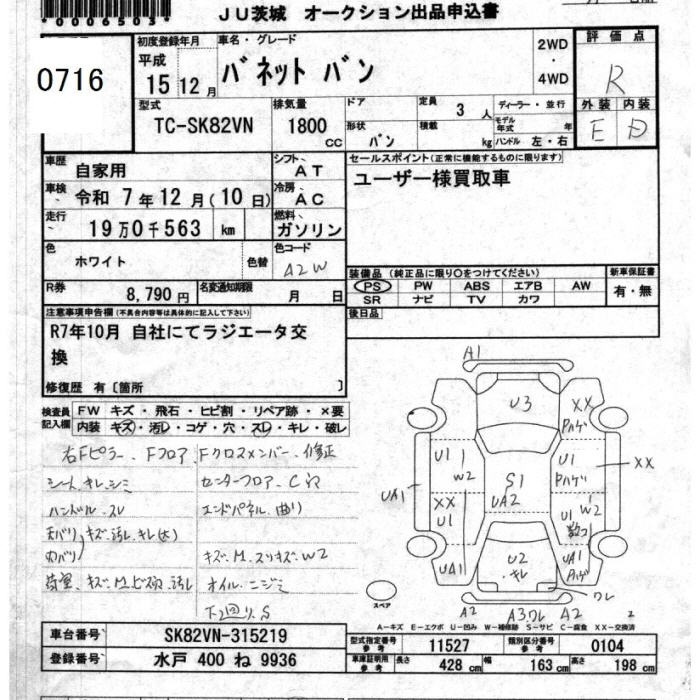 *0006503*
JU茨城 オークション出品申込書
0716
初度登録年月
平成
15 12 月
車名・グレード
バネット バン
2WD
・
4WD
評価点
R
外装 内装
E D
型式
TC-SK82VN
排気量
1800 cc
ドア
定員 3 人
ディーラー・並行
モデル年式 年
形状 バン
積載 kg
ハンドル 左・右
車歴
自家用
シフト AT
セールスポイント(正常に機能するものに限ります)
ユーザー様買取車
車検 令和 7年 12月(10日)
冷房 AC
走行 19万0千563 km
燃料 ガソリン
色 ホワイト 色替
色コード A2W
R券 8,790円
名変通知期限 月 日
装備品(純正品に限り○をつけてください)
新車保証書
PS PW ABS エアB AW
有・無
SR ナビ TV カワ
後日品
注意事項申告欄(不具合内容等は具体的に記入して下さい)
R7年10月 自社にてラジエータ交
換
修復歴 有〔箇所 〕
検査員記入欄
FW キズ・飛石・ヒビ割・リペア跡・×要
内装 キズ・汚レ・コゲ・穴・スレ・キレ・破レ
右Fピラー、Fフロア、Fクロスメンバー修正
シート、キレ、シミ
センターフロア、C
ハンドル、スレ
エンドパネル、曲り
天バリ キズ、汚レ、キレ(大)
内バリ
キズ、M、スリキズ、W2
荷室、キズ、M、ビス穴、汚レ
オイル、ニジミ
下廻り、S
A1
U3
XX
Pハゲ
U1
W2
U1
Pハゲ
XX
S1
UA2
UA1
XX
U1
U1
W2
数コ
UA1
U2
・キレ
UA1
Pハゲ
ワレ
スペア
A2
A3ワレ
A2
2
A-キズ E-エクボ U-凹み W-補修跡 S-サビ C-腐食 XX-交換済
車台番号 SK82VN-315219
登録番号 水戸 400 ね 9936
型式指定番号 参考 11527
類別区分番号 参考 0104
車庫証明用 参考 長さ 428 cm 幅 163 cm 高さ 198 cm